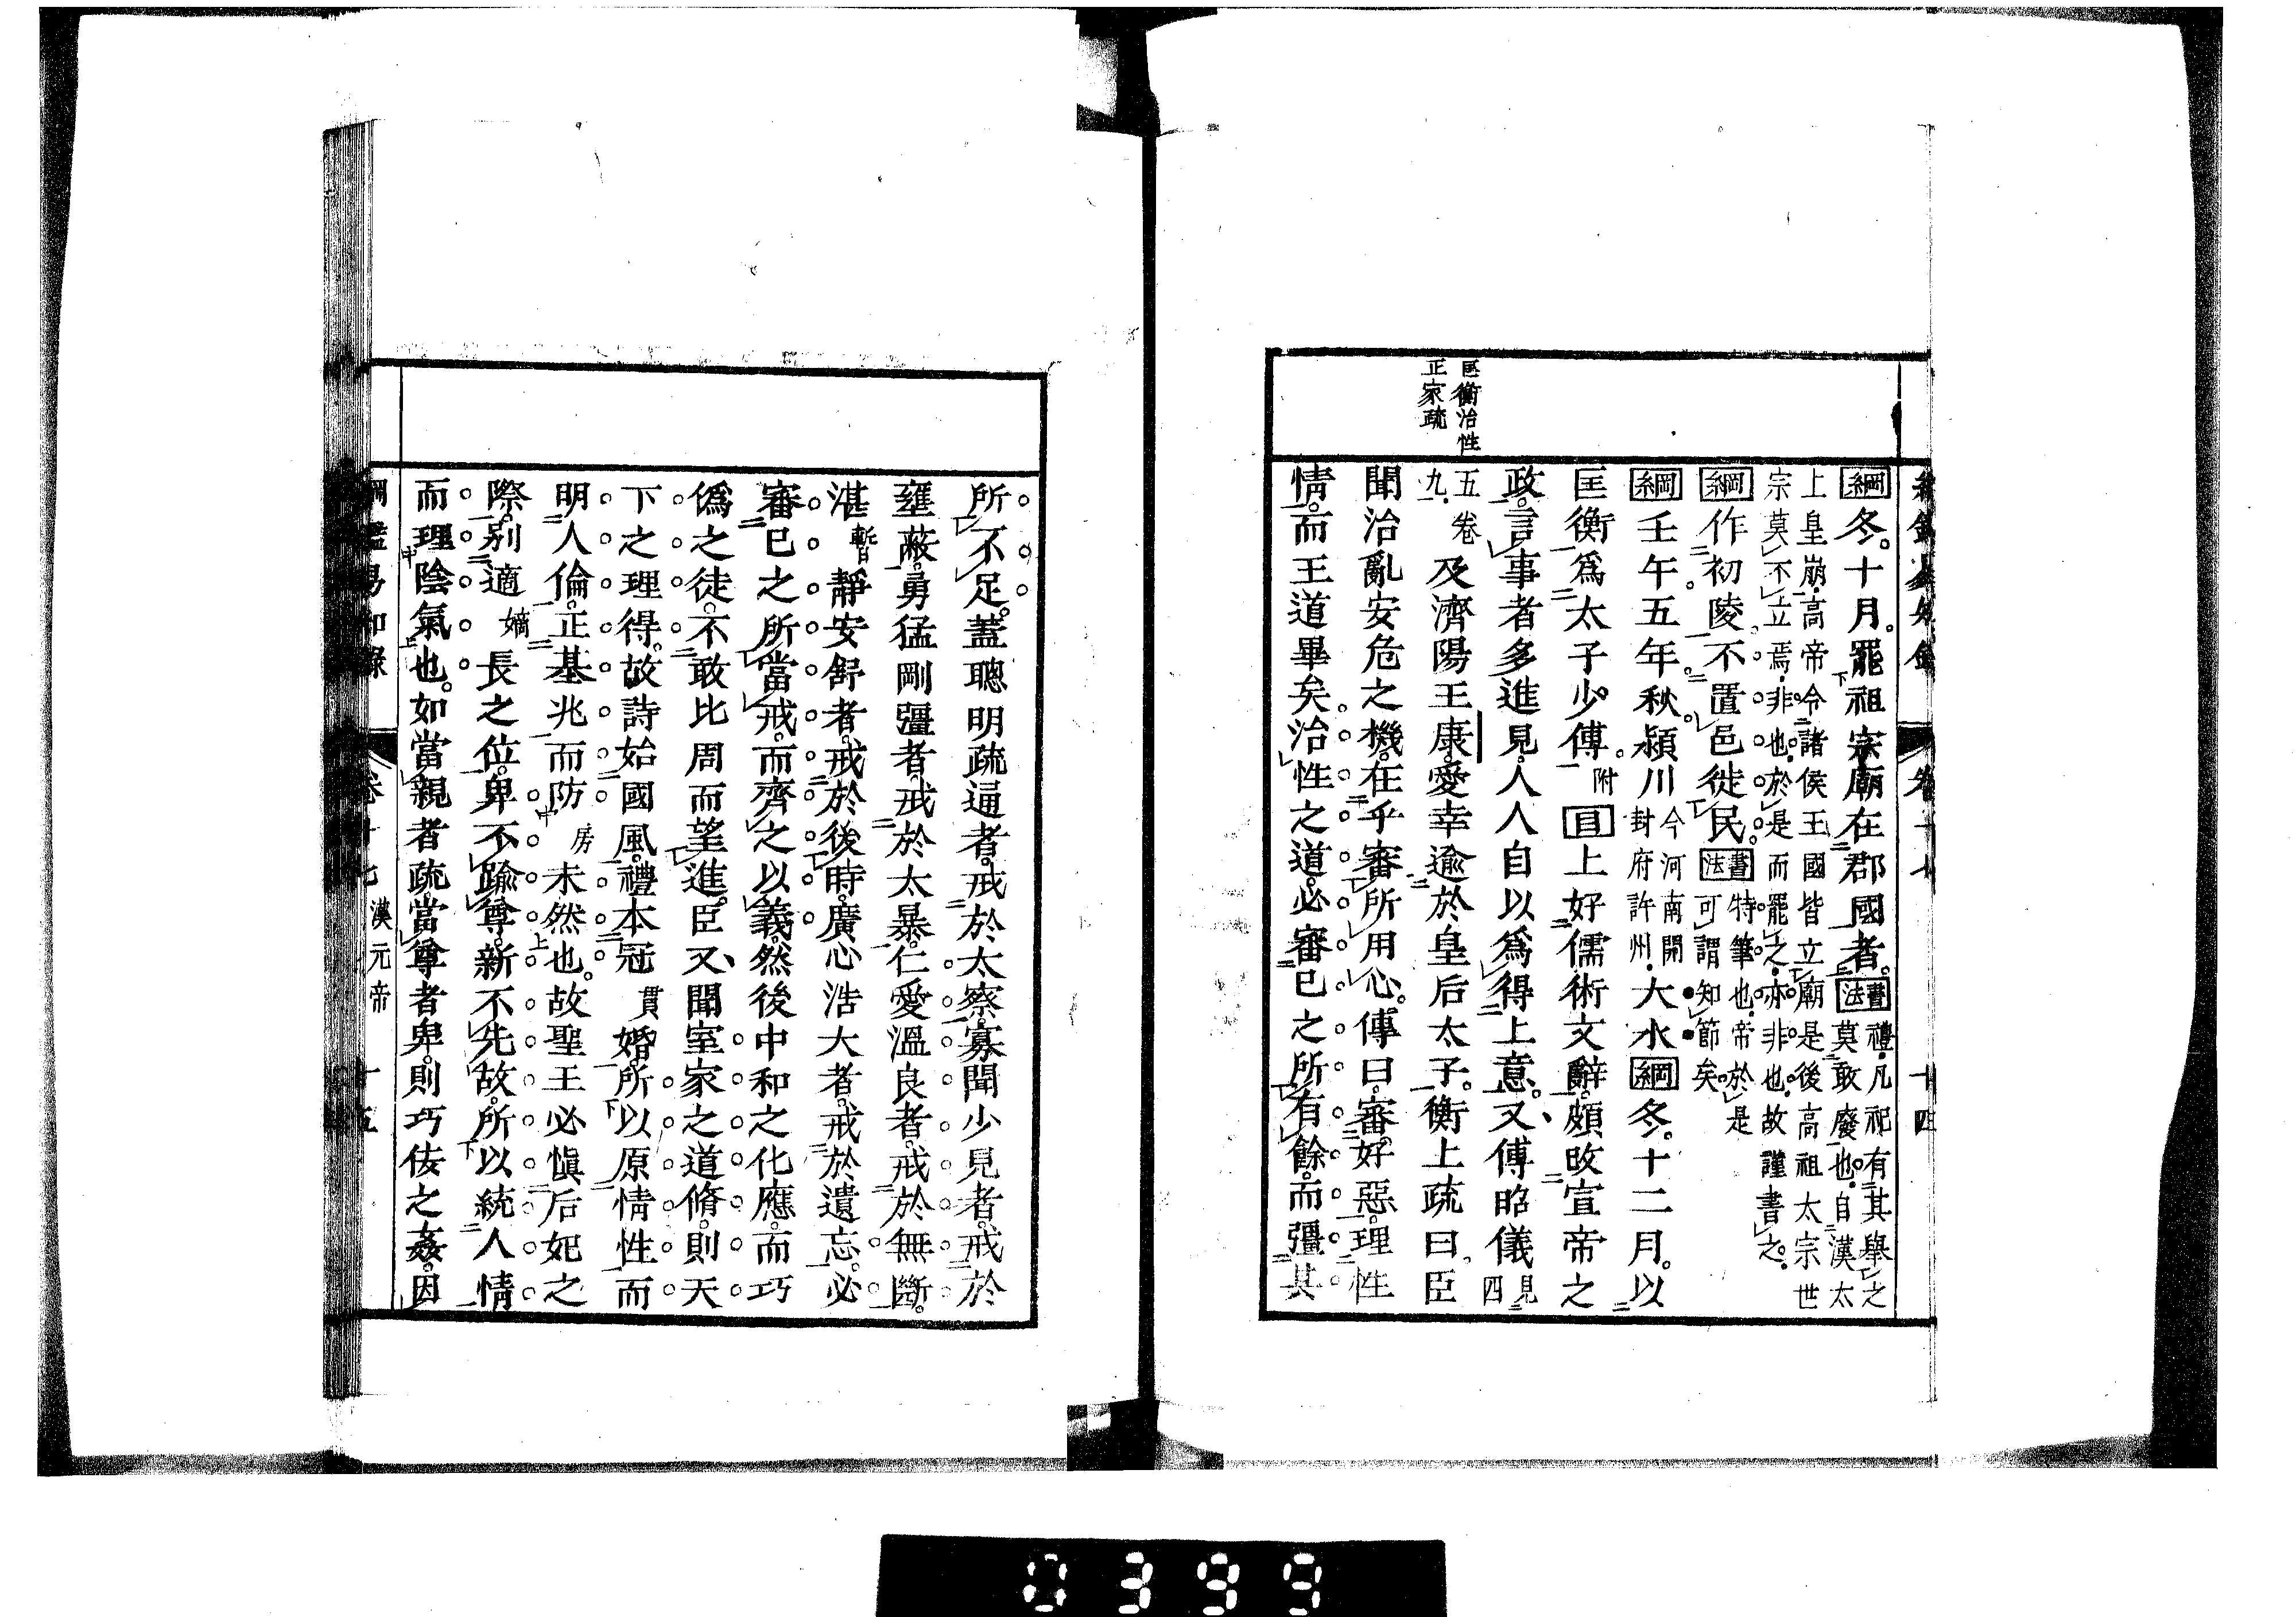 綱鑑易知錄 卷十七 十四
匡衡治性
正家疏
綱冬。十月。罷祖宗廟在郡國者。書法禮。凡祀有其舉之
莫敢廢也。自漢太
上皇崩。高帝令諸侯王國皆立廟。是後高祖太宗世
宗莫不立焉。非也。於是而罷之。亦非也。故謹書之。
綱作初陵。不置邑徙民。書法特筆也。帝於是
可謂知節矣。
綱壬午。五年。秋。潁川今河南開
封府許州。大水綱冬。十二月。以
匡衡爲太子少傅。附目上好儒術文辭。頗改宣帝之
政。言事者多進見。人人自以爲得上意。又傅昭儀見
四
五
九。卷及濟陽王康。愛幸逾於皇后太子。衡上疏曰。臣
聞治亂安危之機。在乎審所用心。傳曰。審好惡。理性
情。而王道畢矣。治性之道。必審己之所有餘。而彊其
所不足。蓋聰明疏通者。戒於太察。寡聞少見者。戒於
壅蔽。勇猛剛彊者。戒於太暴。仁愛溫良者。戒於無斷。
湛暫靜安舒者。戒於後時。廣心浩大者。戒於遺忘。必
審己之所當戒。而齊之以義。然後中和之化應。而巧
僞之徒。不敢比周而望進。臣又聞室家之道脩。則天
下之理得。故詩始國風。禮本冠貫婚。所以原情性而
明人倫。正基兆而防房未然也。故聖王必愼后妃之
際。別適嫡長之位。卑不踰尊。新不先故。所以統人情
而理陰氣也。如當親者疏。當尊者卑。則巧佞之姦。因
綱鑑易知錄 卷十七 漢元帝 十五
0399